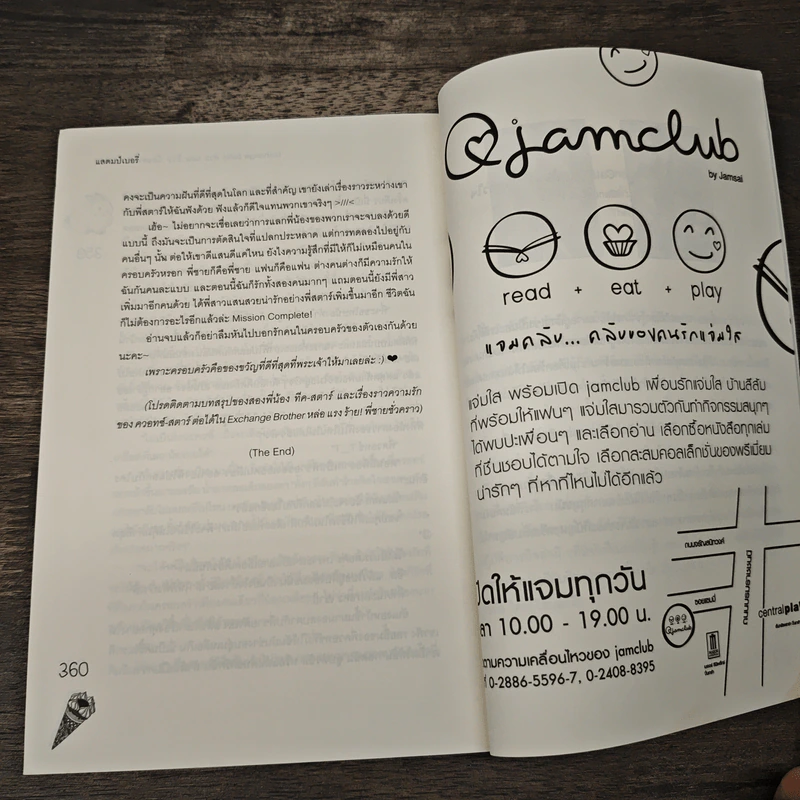 แสตมป์เบอรี่
คงจะเป็นความฝันที่ดีที่สุดในโลก และที่สำคัญ เขายังเล่าเรื่องราวระหว่างเขา
กับพี่สตาร์ให้ฉันฟังด้วย ฟังแล้วก็ดีใจแทนพวกเขาจริงๆ >///<
เฮ้อ~ ไม่อยากจะเชื่อเลยว่าการแลกพี่น้องของพวกเราจะจบลงด้วยดี
แบบนี้ ถึงมันจะเป็นการตัดสินใจที่แปลกประหลาด แต่การทดลองไปอยู่กับ
คนอื่นๆ นั้น ต่อให้เขาดีแสนดีแค่ไหน ยังไงความรู้สึกที่มีให้ก็ไม่เหมือนคนใน
ครอบครัวหรอก พี่ชายก็คือพี่ชาย แฟนก็คือแฟน ต่างคนต่างก็มีความรักให้
ฉันกันคนละแบบ และตอนนี้ฉันก็รักทั้งสองคนมากๆ แถมตอนนี้ยังมีพี่สาว
เพิ่มมาอีกคนด้วย ได้พี่สาวแสนสวยน่ารักอย่างพี่สตาร์เพิ่มขึ้นมาอีก ชีวิตฉัน
ก็ไม่ต้องการอะไรอีกแล้วล่ะ Mission Complete!
อ่านจบแล้วก็อย่าลืมหันไปบอกรักคนในครอบครัวของตัวเองกันด้วย
นะคะ~
เพราะครอบครัวคือของขวัญที่ดีที่สุดที่พระเจ้าให้มาเลยล่ะ :) ❤
(โปรดติดตามบทสรุปของสองพี่น้อง ทีค-สตาร์ และเรื่องราวความรัก
ของ ควอทซ์-สตาร์ ต่อได้ใน Exchange Brother หล่อ แรง ร้าย! พี่ชายชั่วคราว)
(The End)
360
@jamclub
by Jamsai
read + eat + play
แจมคลับ... คลับของคนรักแจ่มใส
แจ่มใส พร้อมเปิด jamclub เพื่อนรักแจ่มใส บ้านสีส้ม
ที่พร้อมให้แฟนๆ แจ่มใสมารวมตัวกันทำกิจกรรมสนุกๆ
ได้พบปะเพื่อนๆ และเลือกอ่าน เลือกซื้อหนังสือทุกเล่ม
ที่ชื่นชอบได้ตามใจ เลือกสะสมคอลเล็กชั่นของพรีเมี่ยม
น่ารักๆ ที่หาที่ไหนไม่ได้อีกแล้ว
ถนนจรัญสนิทวงศ์
ซอยแฮมมี่
@jamclub
ปิดให้แจมทุกวัน
ลา 10.00 - 19.00 น.
ตามความเคลื่อนไหวของ jamclub
ที่ 0-2886-5596-7, 0-2408-8395